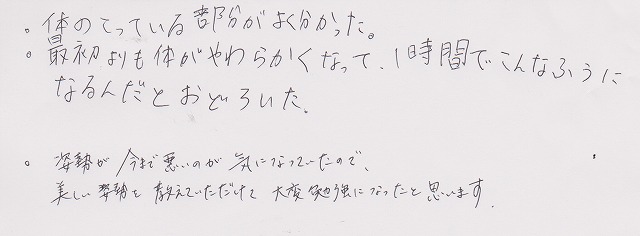 。体のこっている部分がよく分かった。
。最初よりも体がやわらかくなって、1時間でこんなふうに
なるんだとおどろいた。
。姿勢が今まで悪いのが気になっていたので、
美しい姿勢を教えていただけて大変勉強になったと思います.